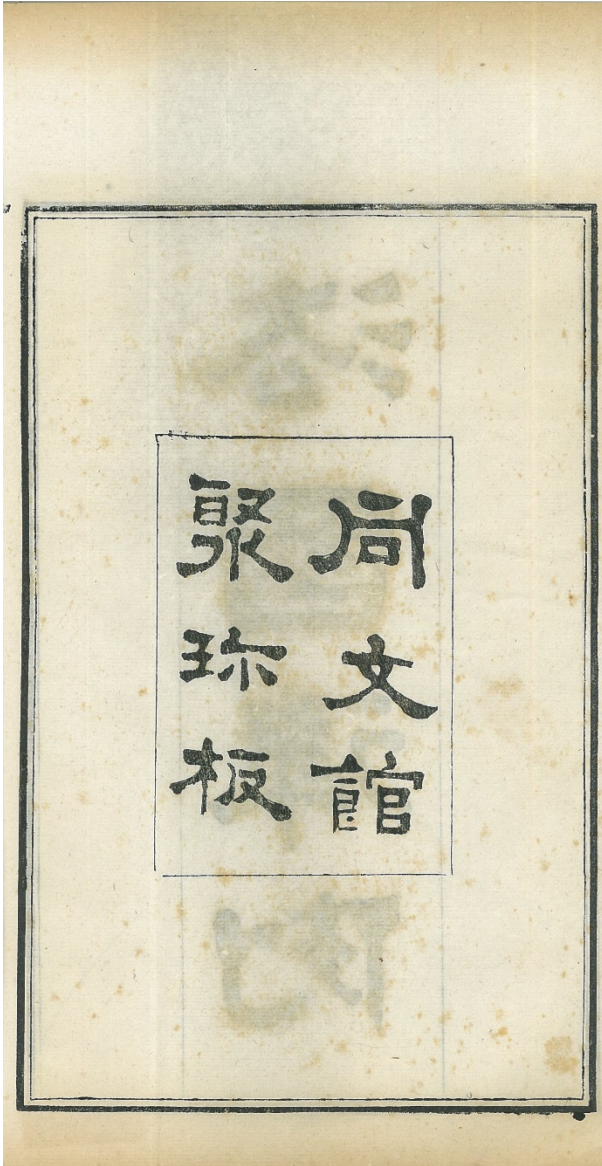 同文館
聚珎板